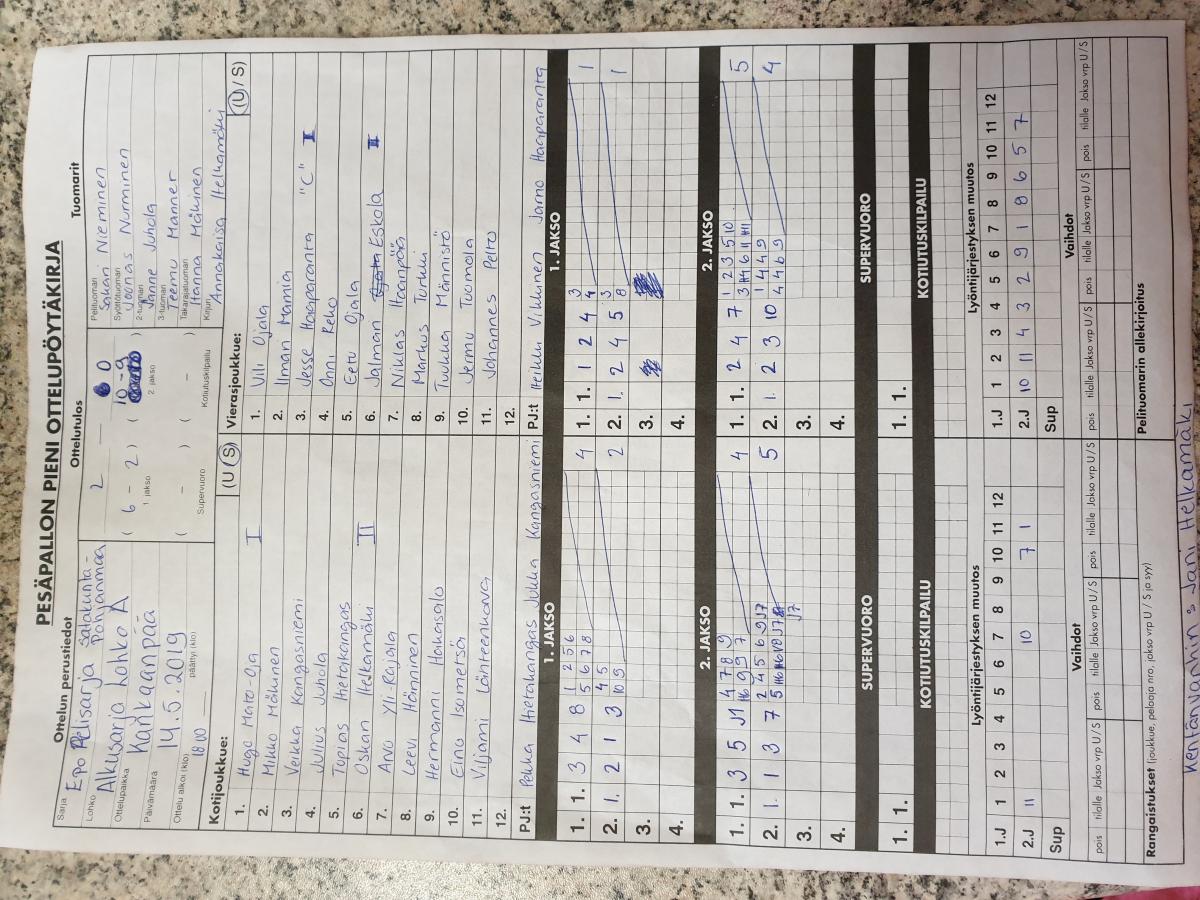 PESÄPALLON PIENI OTTELUPÖYTÄKIRJA
Ottelun perustiedot
Ottelutulos
Tuomarit
Sarja Epo Pelisarja Satakunta-Pohjanmaa
Lohko Alkusarja lohko A
Ottelupaikka Kankaanpää
Päivämäärä 14.5.2019
Ottelu alkoi (klo) 18 00 päättyi (klo)
2 — 0
( 6 - 2 ) ( 10 - 9 )
1 jakso 2 jakso
( - ) ( - )
Supervuoro Kotiutuskilpailu
Pelituomari Sakari Nieminen
Syöttötuomari Joonas Nurminen
2-tuomari Janne Juhola
3-tuomari Teemu Manner
Takarajatuomari Hanna Mäkinen
Kirjuri Annakaisa Helkamäki
Kotijoukkue: (U / S)
1. Hugo Mato-oja I
2. Mikko Mäkinen
3. Veikka Kangasniemi
4. Julius Juhola
5. Topias Hietakangas
6. Oskari Helkamäki II
7. Arvo Yli-Rajala
8. Leevi Hänninen
9. Hermanni Hakasalo
10. Eino Isometsä
11. Viljami Lähteenkorva
12.
PJ:t Pekka Hietakangas Jukka Kangasniemi
Vierasjoukkue: (U / S)
1. Vili Ojala
2. Ilmari Mamia
3. Jesse Haaparanta "C" I
4. Onni Reho
5. Eetu Ojala
6. Jalmari Eskola II
7. Niklas Haanpää
8. Markus Turkki
9. Tuukka Männistö
10. Jermu Tuomola
11. Johannes Pelto
12.
PJ:t Heikki Vikkinen Jarno Haaparanta
1. JAKSO
1. JAKSO
1. 1. 3 4 8 4
1. 1. 1 2 4 1
2. 1. 2 1 3 2
2. 1. 2 4 5 1
3.
3.
4.
4.
2. JAKSO
2. JAKSO
1. 1. 3 5 J1 4
1. 1. 2 4 7 5
2. 1. 1 3 7 5
2. 1. 2 3 10 4
3.
3.
4.
4.
SUPERVUORO
SUPERVUORO
1. 1.
1. 1.
KOTIUTUSKILPAILU
KOTIUTUSKILPAILU
Lyöntijärjestyksen muutos
Lyöntijärjestyksen muutos
1.J 1 2 3 4 5 6 7 8 9 10 11 12
1.J 1 2 3 4 5 6 7 8 9 10 11 12
2.J 11 10 7 1
2.J 10 11 4 3 2 9 1 8 6 5 7
Sup
Sup
Vaihdot
Vaihdot
pois tilalle Jakso vrp U / S pois tilalle Jakso vrp U / S pois tilalle Jakso vrp U / S
pois tilalle Jakso vrp U / S pois tilalle Jakso vrp U / S pois tilalle Jakso vrp U / S
Rangaistukset (joukkue, pelaaja nro, jakso vrp U / S ja syy)
Pelituomarin allekirjoitus
Kentänvanhin: Jani Helkamäki